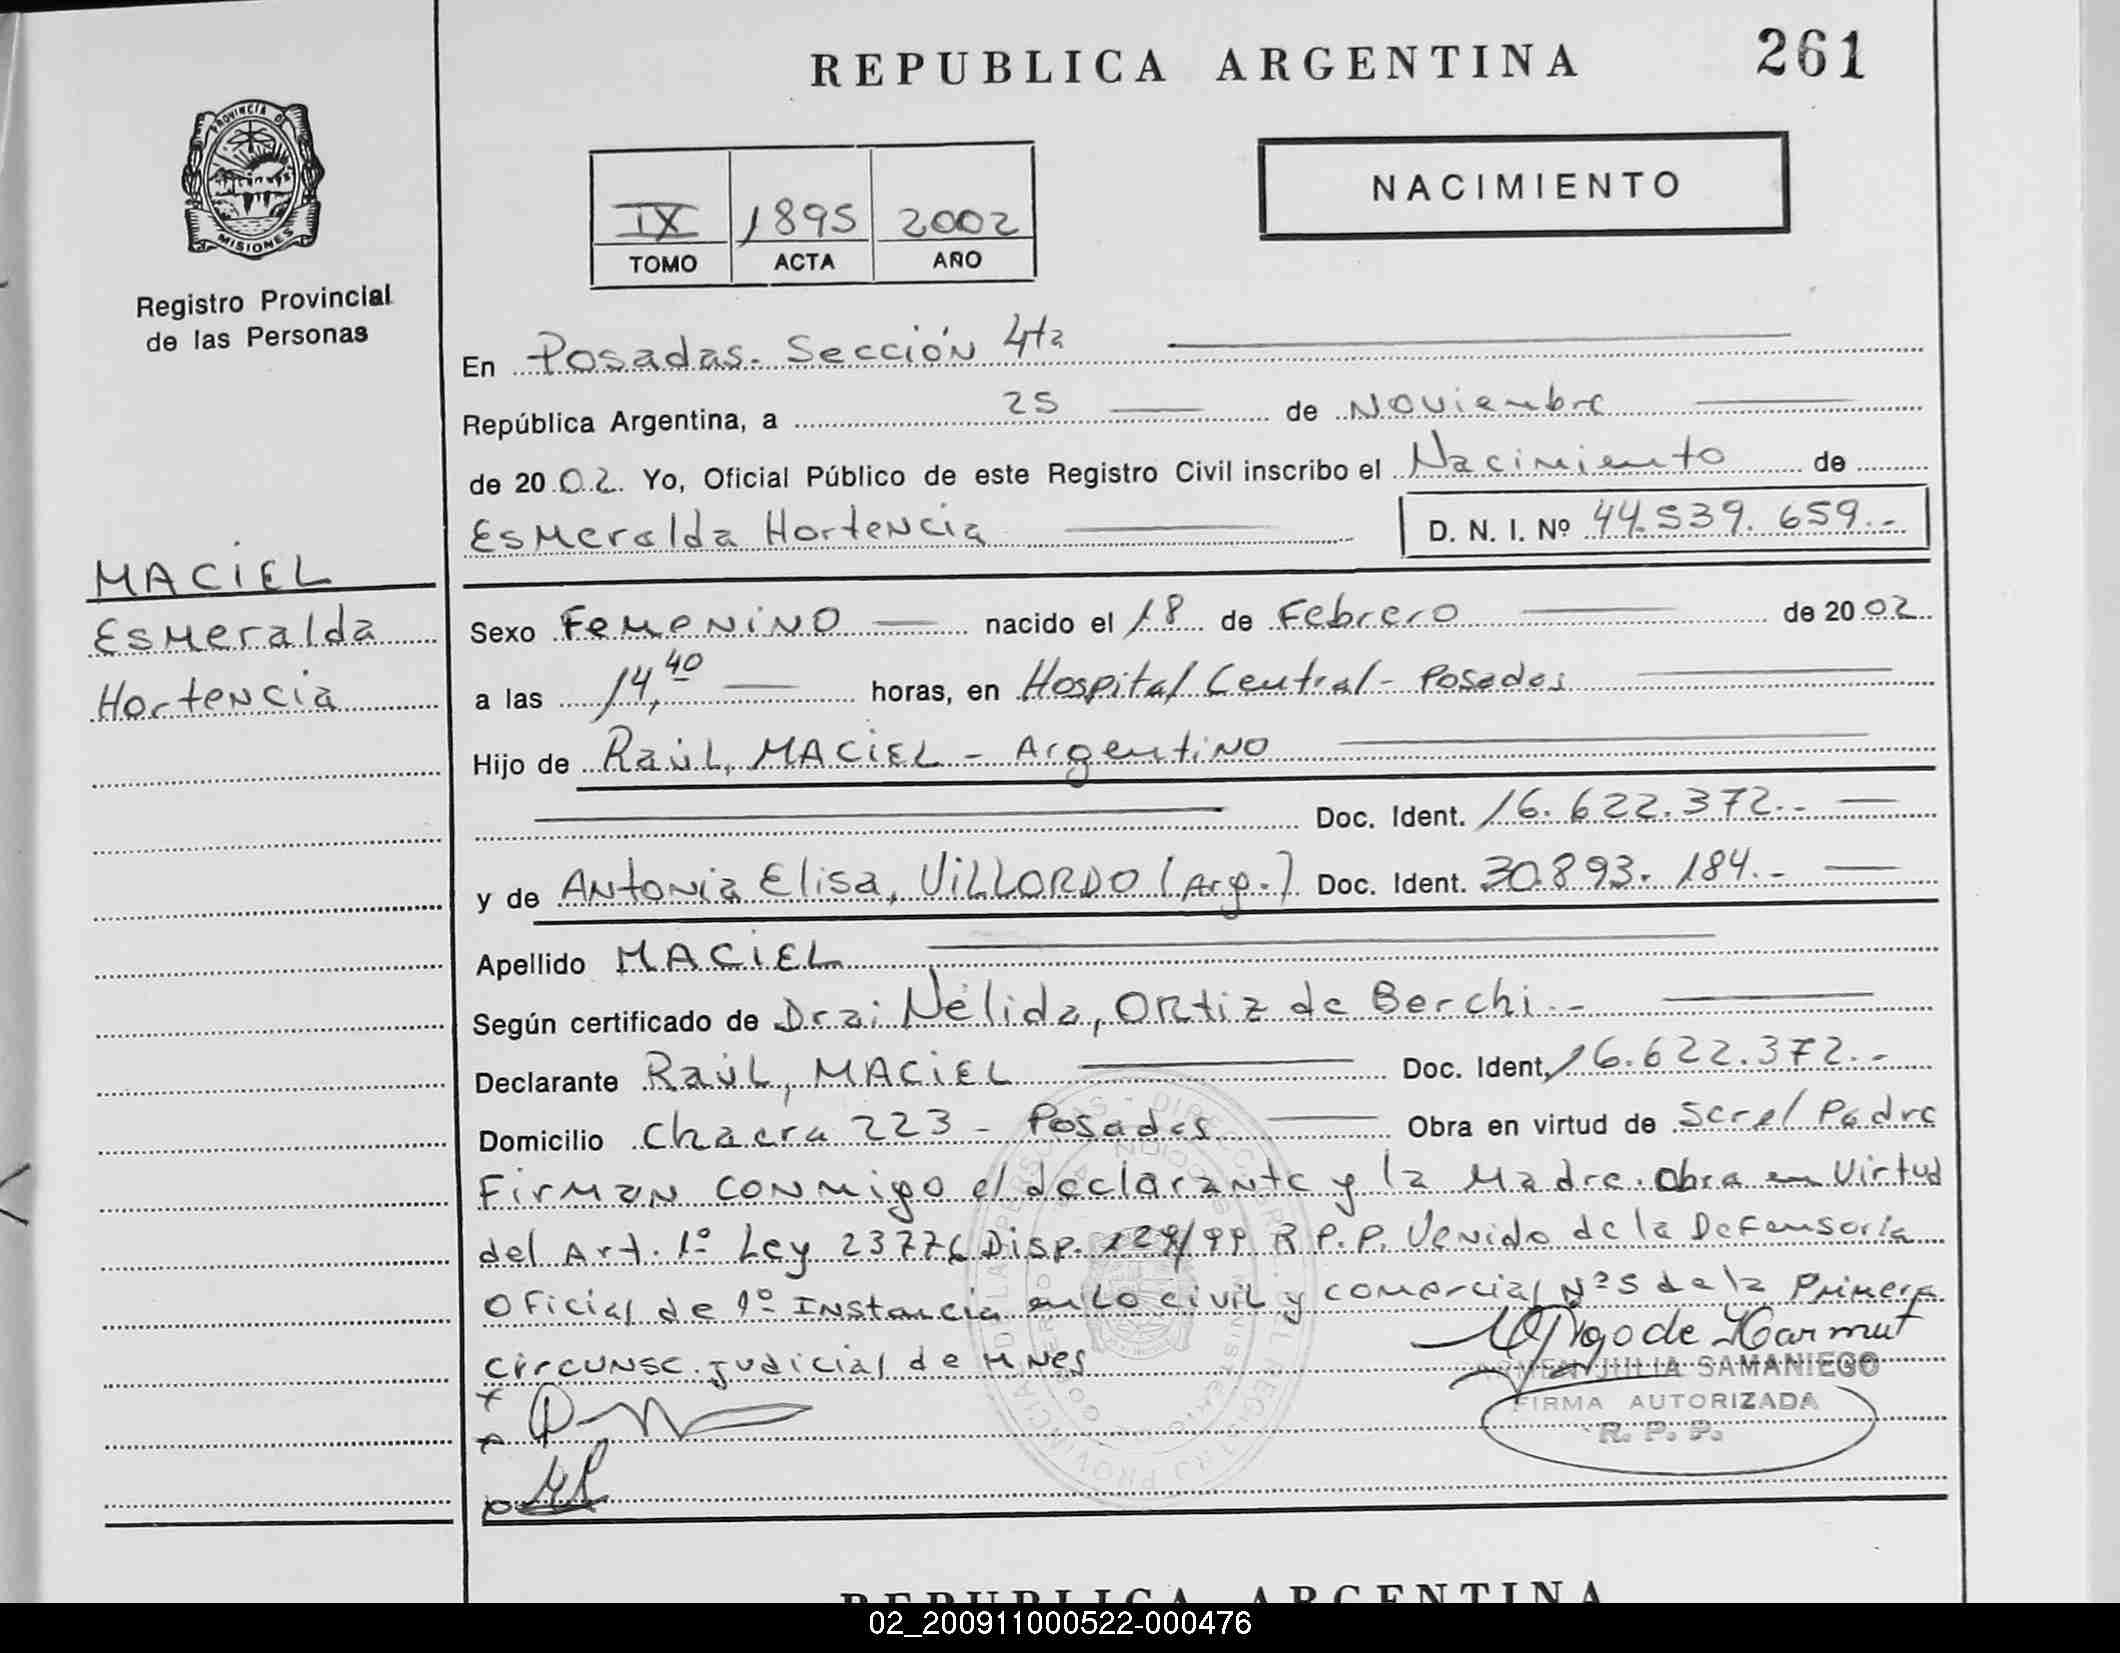 REPUBLICA ARGENTINA 261
PROVINCIA DE
MISIONES
Registro Provincial
de las Personas
NACIMIENTO
IX 1895 2002
TOMO ACTA AÑO
En Posadas. Sección 4ta
República Argentina, a 25 de Noviembre
de 2002. Yo, Oficial Público de este Registro Civil inscribo el Nacimiento de
Esmeralda Hortencia D. N. I. Nº 44.539.659.-
MACIEL
Esmeralda
Hortencia
Sexo Femenino nacido el 18 de Febrero de 2002
a las 14,40 horas, en Hospital Central - Posadas
Hijo de Raúl, MACIEL - Argentino
Doc. Ident. 16.622.372.-
y de Antonia Elisa, VILLORDO (Arg.) Doc. Ident. 30.893.184.-
Apellido MACIEL
Según certificado de Dra: Nélida, Ortiz de Berchi.-
Declarante Raúl, MACIEL Doc. Ident. 16.622.372.-
Domicilio Chacra 223 - Posadas Obra en virtud de ser el Padre
Firman conmigo el declarante y la Madre. Obra en Virtud
del Art. 1º Ley 23776 Disp. 129/99 R.P.P. Venido de la Defensoría
Oficial de 1º Instancia en lo civil y comercial Nº 5 de la Primera
Circunsc. judicial de Mnes
JULIA SAMANIEGO
FIRMA AUTORIZADA
R. P. P.
REPUBLICA ARGENTINA
02_200911000522-000476